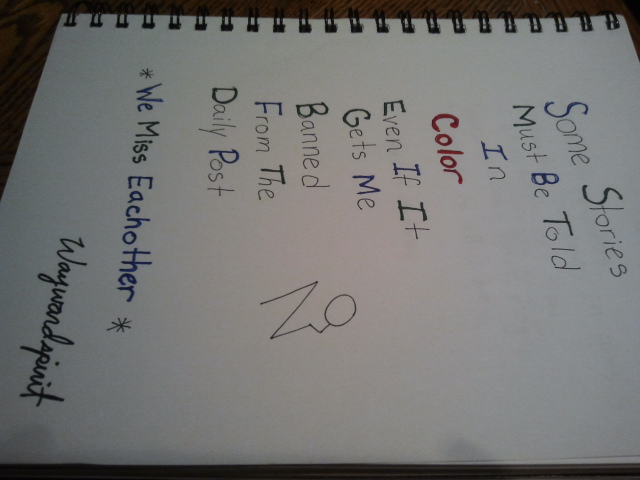 Some Stories
Must Be Told
In
Color
Even If It
Gets Me
Banned
From The
Daily Post
* We Miss Eachother *
Waywardspirit